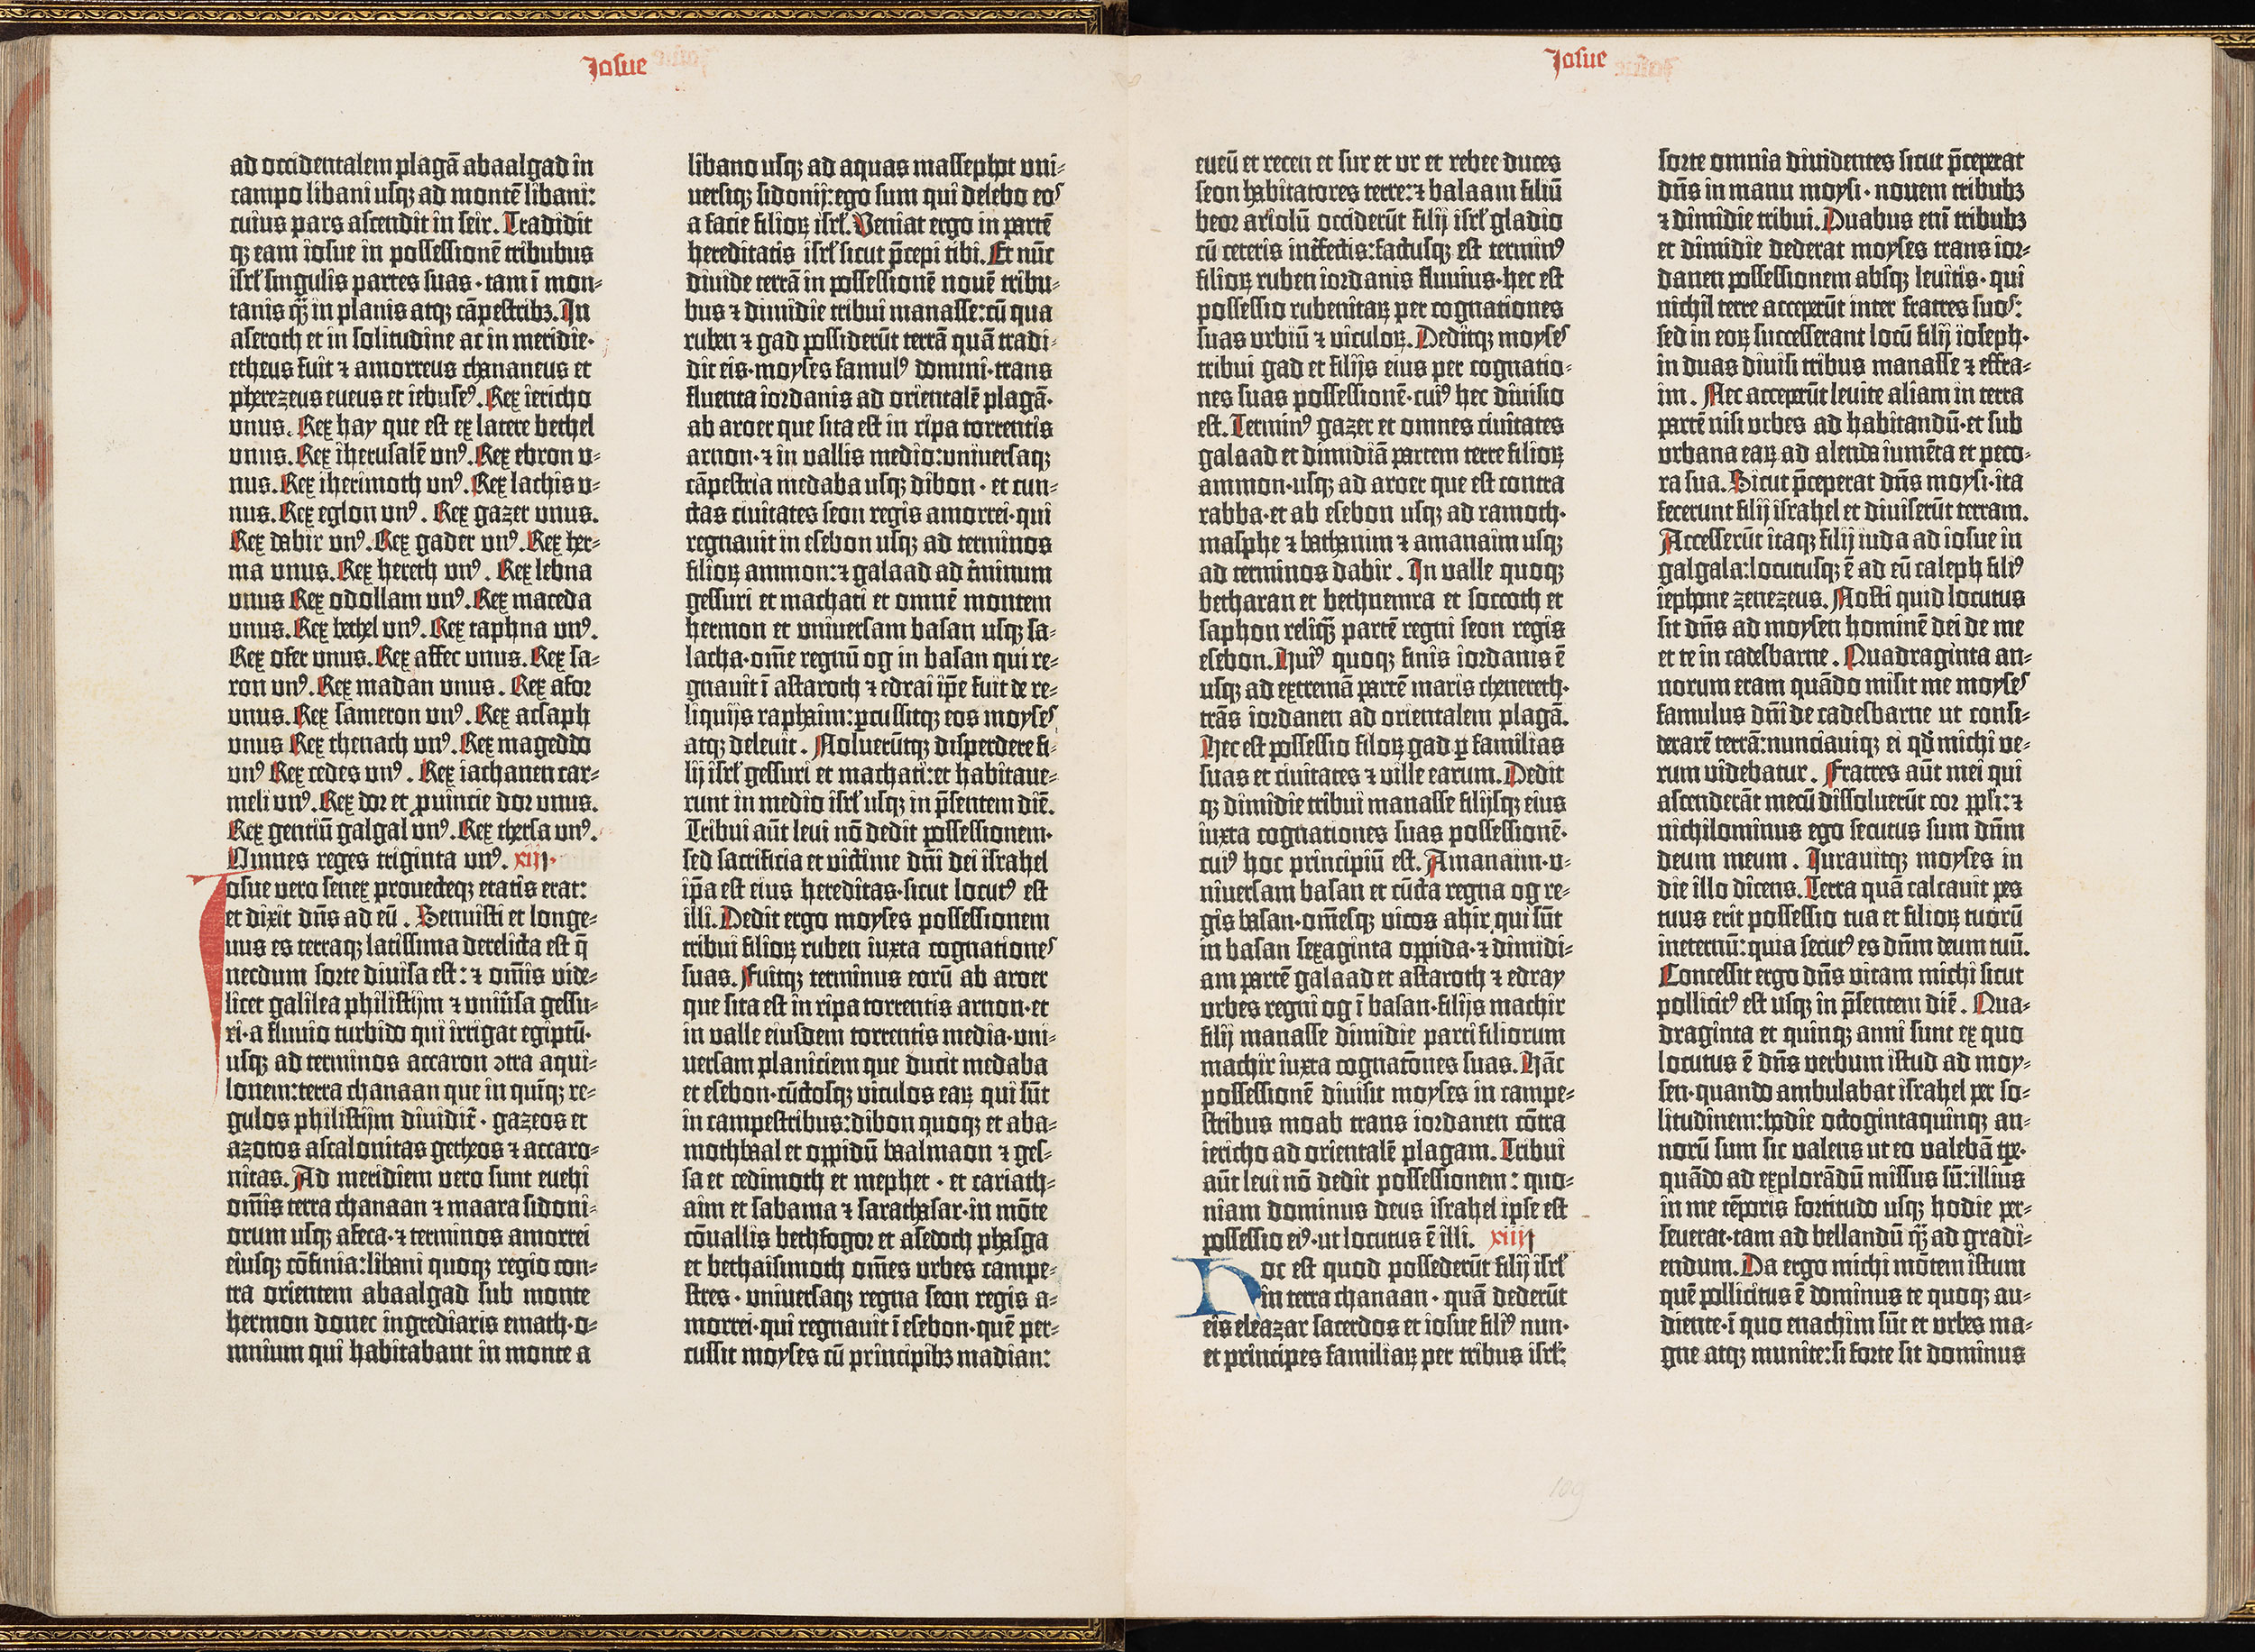 Josue
ad occidentalem plagā abaalgad in
campo libani usqꝫ ad montē libani:
cuius pars ascendit in seir. Tradidit
qꝫ eam iosue in possessionē tribubus
isrl̄ singulis partes suas · tam ī mon-
tanis q̄ꝫ in planis atqꝫ cāpestribꝫ. In
aseroth et in solitudine ac in meridie·
etheus fuit ⁊ amorreus chananeus et
pherezeus eueus et iebuseꝰ. Rex iericho
unus. Rex hay que est ex latere bethel
unus. Rex iherusalē unꝰ. Rex ebron u-
nus. Rex iherimoth unꝰ. Rex lachis u-
nus. Rex eglon unꝰ. Rex gazer unus.
Rex dabir unꝰ. Rex gader unꝰ. Rex her-
ma unus. Rex hereth unꝰ. Rex lebna
unus Rex odollam unꝰ. Rex maceda
unus. Rex bethel unꝰ. Rex taphna unꝰ.
Rex ofer unus. Rex affec unus. Rex sa-
ron unꝰ. Rex madan unus. Rex asor
unus. Rex sameron unꝰ. Rex acsaph
unus Rex thenach unꝰ. Rex mageddo
unꝰ Rex cedes unꝰ. Rex iachanen car-
meli unꝰ. Rex dor et ꝓuincie dor unus.
Rex gentiū galgal unꝰ. Rex thersa unꝰ.
Omnes reges triginta unꝰ. xiij·
Josue vero senex prouecteqꝫ etatis erat:
et dixit dn̄s ad eū. Senuisti et longe-
uus es terraqꝫ latissima derelicta est q̄
necdum sorte diuisa est: ⁊ om̄is vide-
licet galilea philistijm ⁊ uniūsa gessu-
ri· a fluuio turbido qui irrigat egiptū·
usqꝫ ad terminos accaron ↄtra aqui-
lonem: terra chanaan que in quīqꝫ re-
gulos philistijm diuidit̄· gazeos et
azotos ascalonitas getheos ⁊ accaro-
nitas. Ad meridiem vero sunt euehi
om̄is terra chanaan ⁊ maara sidoni-
orum usqꝫ afeca· ⁊ terminos amorrei
eiusqꝫ cōfinia: libani quoqꝫ regio con-
tra orientem abaalgad sub monte
hermon donec ingrediaris emath· o-
mnium qui habitabant in monte a
libano usqꝫ ad aquas massephot uni-
uersiqꝫ sidonij: ego sum qui delebo eos
a facie filioꝝ isrl̄. Veniat ergo in partē
hereditatis isrl̄ sicut p̄cepi tibi. Et nūc
diuide terrā in possessionē nouē tribu-
bus ⁊ dimidie tribui manasse: cū qua
ruben ⁊ gad possiderūt terrā quā tradi-
dit eis· moyses famulꝰ domini· trans
fluenta iordanis ad orientalē plagā·
ab aroer que sita est in ripa torrentis
arnon· ⁊ in vallis medio: uniuersaqꝫ
cāpestria medaba usqꝫ dibon · et cun-
ctas ciuitates seon regis amorrei· qui
regnauit in esebon usqꝫ ad terminos
filioꝝ ammon: ⁊ galaad ad t̄minum
gessuri et machati et omnē montem
hermon et uniuersam basan usqꝫ sa-
lacha· om̄e regnū og in basan qui re-
gnauit ī astaroth ⁊ edrai ip̄e fuit de re-
liquijs raphaim: ꝑcussitqꝫ eos moyses
atqꝫ deleuit. Noluerūtqꝫ disperdere fi-
lij isrl̄ gessuri et machati: et habitaue-
runt in medio isrl̄ usqꝫ in p̄sentem diē.
Tribui aūt leui nō dedit possessionem·
sed sacrificia et victime dn̄i dei israhel
ip̄a est eius hereditas· sicut locutꝰ est
illi. Dedit ergo moyses possessionem
tribui filioꝝ ruben iuxta cognationes
suas. Fuitqꝫ terminus eorū ab aroer
que sita est in ripa torrentis arnon· et
in valle eiusdem torrentis media· uni-
uersam planiciem que ducit medaba
et esebon· cūctosqꝫ viculos eaꝝ qui sūt
in campestribus: dibon quoqꝫ et aba-
mothbaal et oppidū baalmaon ⁊ ges-
sa et cedimoth et mephet · et cariath-
aim et sabama ⁊ sarathasar· in mōte
cōuallis bethfogor et asedoch phasga
et bethaisimoth om̄es urbes campe-
stres · uniuersaqꝫ regna seon regis a-
morrei· qui regnauit ī esebon· quē per-
cussit moyses cū principibꝫ madian:
Josue
eueū et recen et sur et ur et rebee duces
seon habitatores terre: ⁊ balaam filiū
beor ariolū occiderūt filij isrl̄ gladio
cū ceteris int̄fectis: factusqꝫ est terminꝰ
filioꝝ ruben iordanis fluuius· hec est
possessio rubenitaꝝ per cognationes
suas urbiū ⁊ viculoꝝ. Deditqꝫ moyses
tribui gad et filijs eius per cognatio-
nes suas possessionē· cuiꝰ hec diuisio
est. Terminꝰ gazer et omnes ciuitates
galaad et dimidiā partem terre filioꝝ
ammon· usqꝫ ad aroer que est contra
rabba· et ab esebon usqꝫ ad ramoth·
masphe ⁊ bathanim ⁊ amanaim usqꝫ
ad terminos dabir. In valle quoqꝫ
betharan et bethnemra et soccoth et
saphon reliq̄ꝫ partē regni seon regis
esebon. Huiꝰ quoqꝫ finis iordanis ē
usqꝫ ad extremā partē maris chenereth·
trās iordanen ad orientalem plagā.
Hec est possessio filioꝝ gad ꝑ familias
suas et ciuitates ⁊ ville earum. Dedit
qꝫ dimidie tribui manasse filijsqꝫ eius
iuxta cognationes suas possessionē·
cuiꝰ hoc principiū est. Amanaim· u-
niuersam basan et cūcta regna og re-
gis basan· om̄esqꝫ vicos ahir qui sūt
in basan sexaginta oppida· ⁊ dimidi-
am partē galaad et astaroth ⁊ edray
urbes regni og ī basan· filijs machir
filij manasse dimidie parti filiorum
machir iuxta cognatōnes suas. Hāc
possessionē diuisit moyses in campe-
stribus moab trans iordanen cōtra
iericho ad orientalē plagam. Tribui
aūt leui nō dedit possessionem: quo-
niam dominus deus israhel ipse est
possessio eiꝰ· ut locutus ē illi. xiiij
Hoc est quod possederūt filij isrl̄
in terra chanaan · quā dederūt
eis eleazar sacerdos et iosue filiꝰ nun·
et principes familiaꝝ per tribus isrl̄:
sorte omnia diuidentes sicut p̄ceperat
dn̄s in manu moysi · nouem tribubꝫ
⁊ dimidie tribui. Duabus eni tribubꝫ
et dimidie dederat moyses trans ior-
danen possessionem absqꝫ leuitis· qui
nichil terre acceperūt inter fratres suos:
sed in eoꝝ successerant locū filij ioseph·
in duas diuisi tribus manasse ⁊ effra-
im. Nec acceperūt leuite aliam in terra
partē nisi urbes ad habitandū· et sub
urbana eaꝝ ad alenda iumēta et peco-
ra sua. Sicut p̄ceperat dn̄s moysi· ita
fecerunt filij israhel et diuiserūt terram.
Accesserūt itaqꝫ filij iuda ad iosue in
galgala: locutusqꝫ ē ad eū caleph filiꝰ
iephone zenezeus. Nosti quid locutus
sit dn̄s ad moysen hominē dei de me
et te in cadesbarne. Quadraginta an-
norum eram quādo misit me moyses
famulus dn̄i de cadesbarne ut consi-
derarē terrā: nunciauiqꝫ ei qd̄ michi ve-
rum videbatur. Fratres aūt mei qui
ascenderāt mecū dissoluerūt cor ꝓpli: ⁊
nichilominus ego secutus sum dn̄m
deum meum. Jurauitqꝫ moyses in
die illo dicens. Terra quā calcauit pes
tuus erit possessio tua et filioꝝ tuorū
ineternū: quia secutꝰ es dn̄m deum tuū.
Concessit ergo dn̄s vitam michi sicut
pollicitꝰ est usqꝫ in p̄sentem diē. Qua-
draginta et quinqꝫ anni sunt ex quo
locutus ē dn̄s verbum istud ad moy-
sen· quando ambulabat israhel per so-
litudinem: hodie octogintaquinqꝫ an-
norū sum sic valens ut eo valebā tp̄e·
quādo ad explorādū missus sū: illius
in me tēporis fortitudo usqꝫ hodie per-
seuerat· tam ad bellandū q̄ꝫ ad gradi-
endum. Da ergo michi mōtem istum
quē pollicitus ē dominus te quoqꝫ au-
diente· ī quo enachim sūt et urbes ma-
gne atqꝫ munite: si forte sit dominus
109